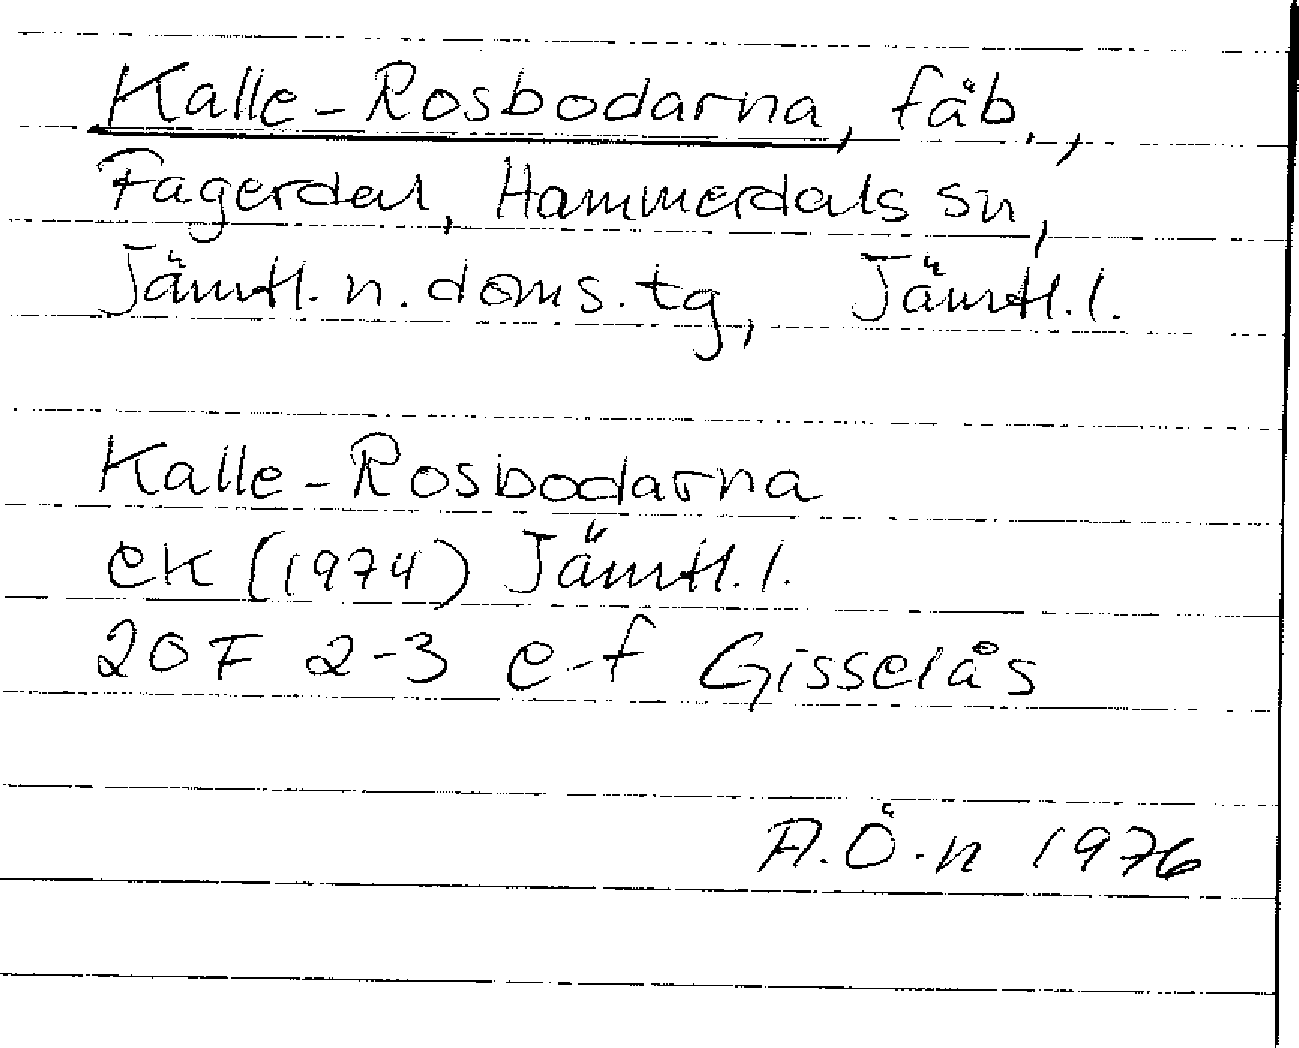 Kalle-Rosbodarna, fäb.,
Fagerdal, Hammerdals sn,
Jämtl. n. doms. tg, Jämtl. l.
Kalle-Rosbodarna
ek (1974) Jämtl. l.
20F 2-3 e-f Gisselås
A.Ö-n 1976